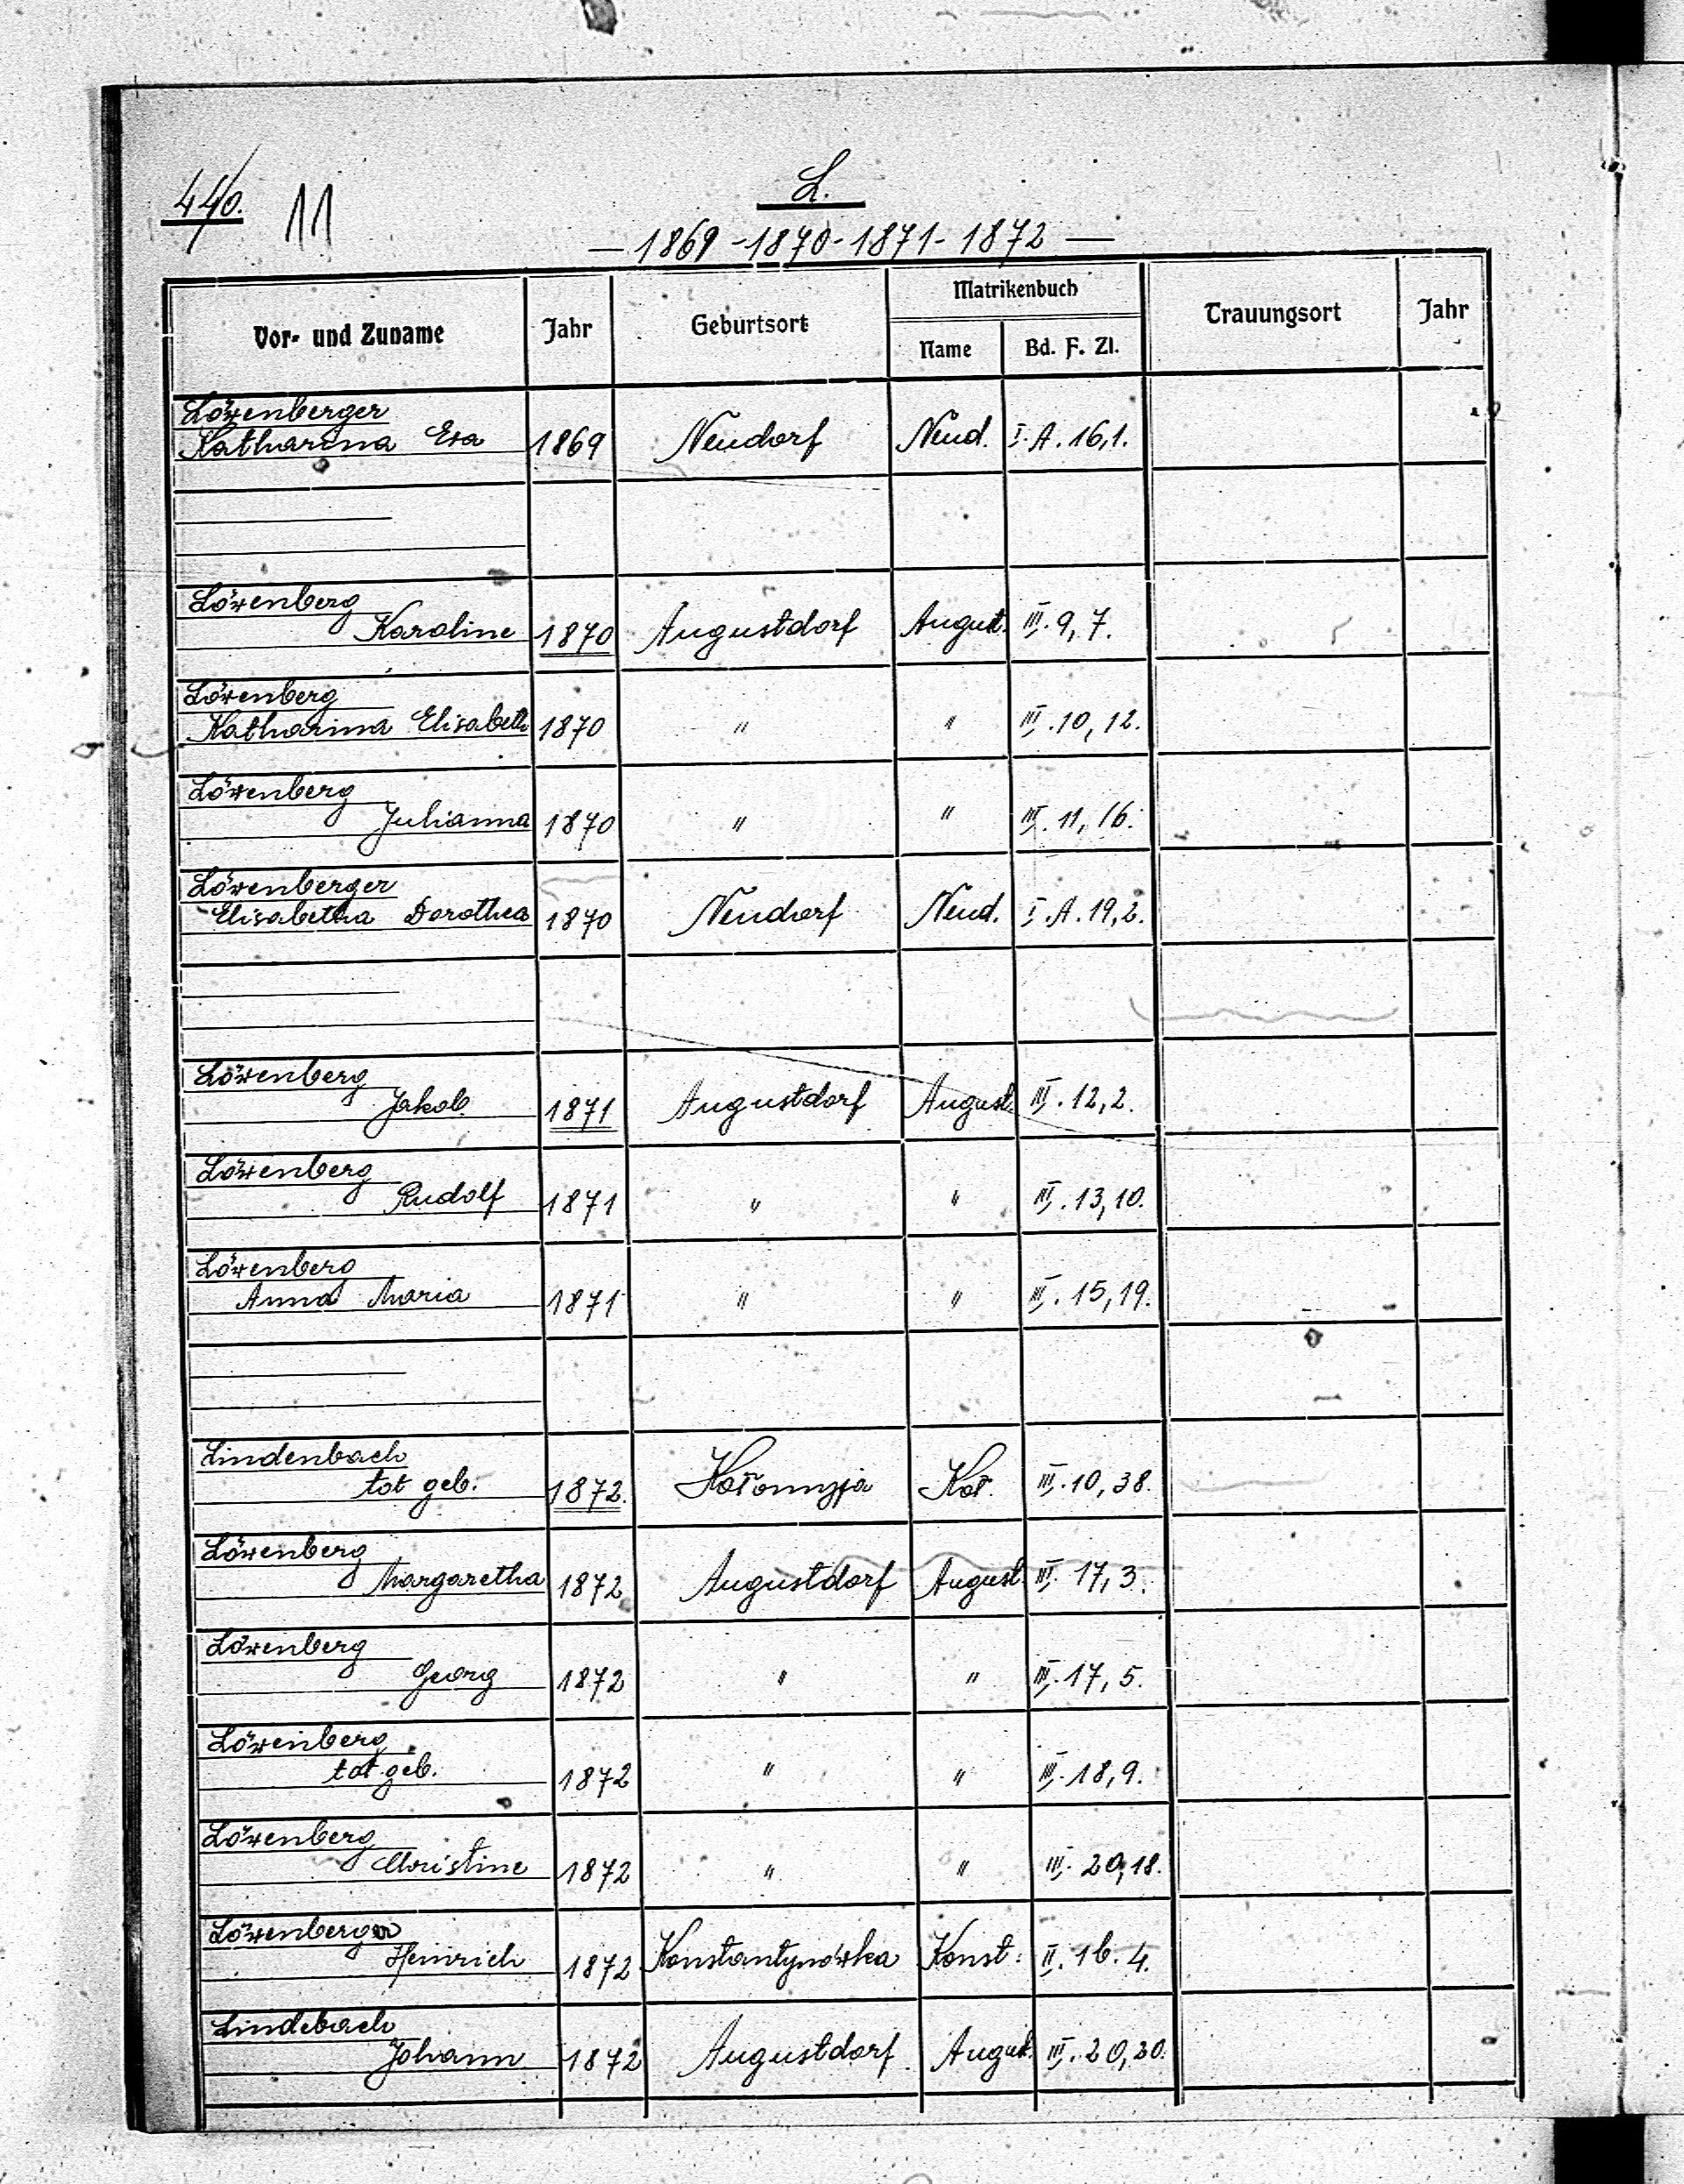 440. 11
L.
— 1869 - 1870 - 1871 - 1872 —
Vor- und Zuname Jahr Geburtsort Matrikenbuch Trauungsort Jahr
Name Bd. F. Zl.
Löwenberger
Katharina Eva 1869 Neudorf Neud. I. A. 16,1.
Löwenberg
Karoline 1870 Augustdorf August. III. 9, 7.
Löwenberg
Katharina Elisabeth 1870 " " III. 10, 12.
Löwenberg
Julianna 1870 " " III. 11, 16.
Löwenberger
Elisabetha Dorothea 1870 Neudorf Neud. I. A. 19,2.
Löwenberg
Jakob 1871 Augustdorf August. III. 12,2.
Löwenberg
Rudolf 1871 " " III. 13,10.
Löwenberg
Anna Maria 1871 " " III. 15,19.
Lindenbach
tot geb. 1872. Kołomyja Koł. III. 10,38.
Löwenberg
Margaretha 1872 Augustdorf August. III. 17,3.
Löwenberg
Georg 1872 " " III. 17, 5.
Löwenberg
tot geb. 1872 " " III. 18,9.
Löwenberg
Christine 1872 " " III. 20,18.
Löwenberger
Heinrich 1872 Konstantynówka Konst: II. 16. 4.
Lindebach
Johann 1872 Augustdorf August. III. 20,20.